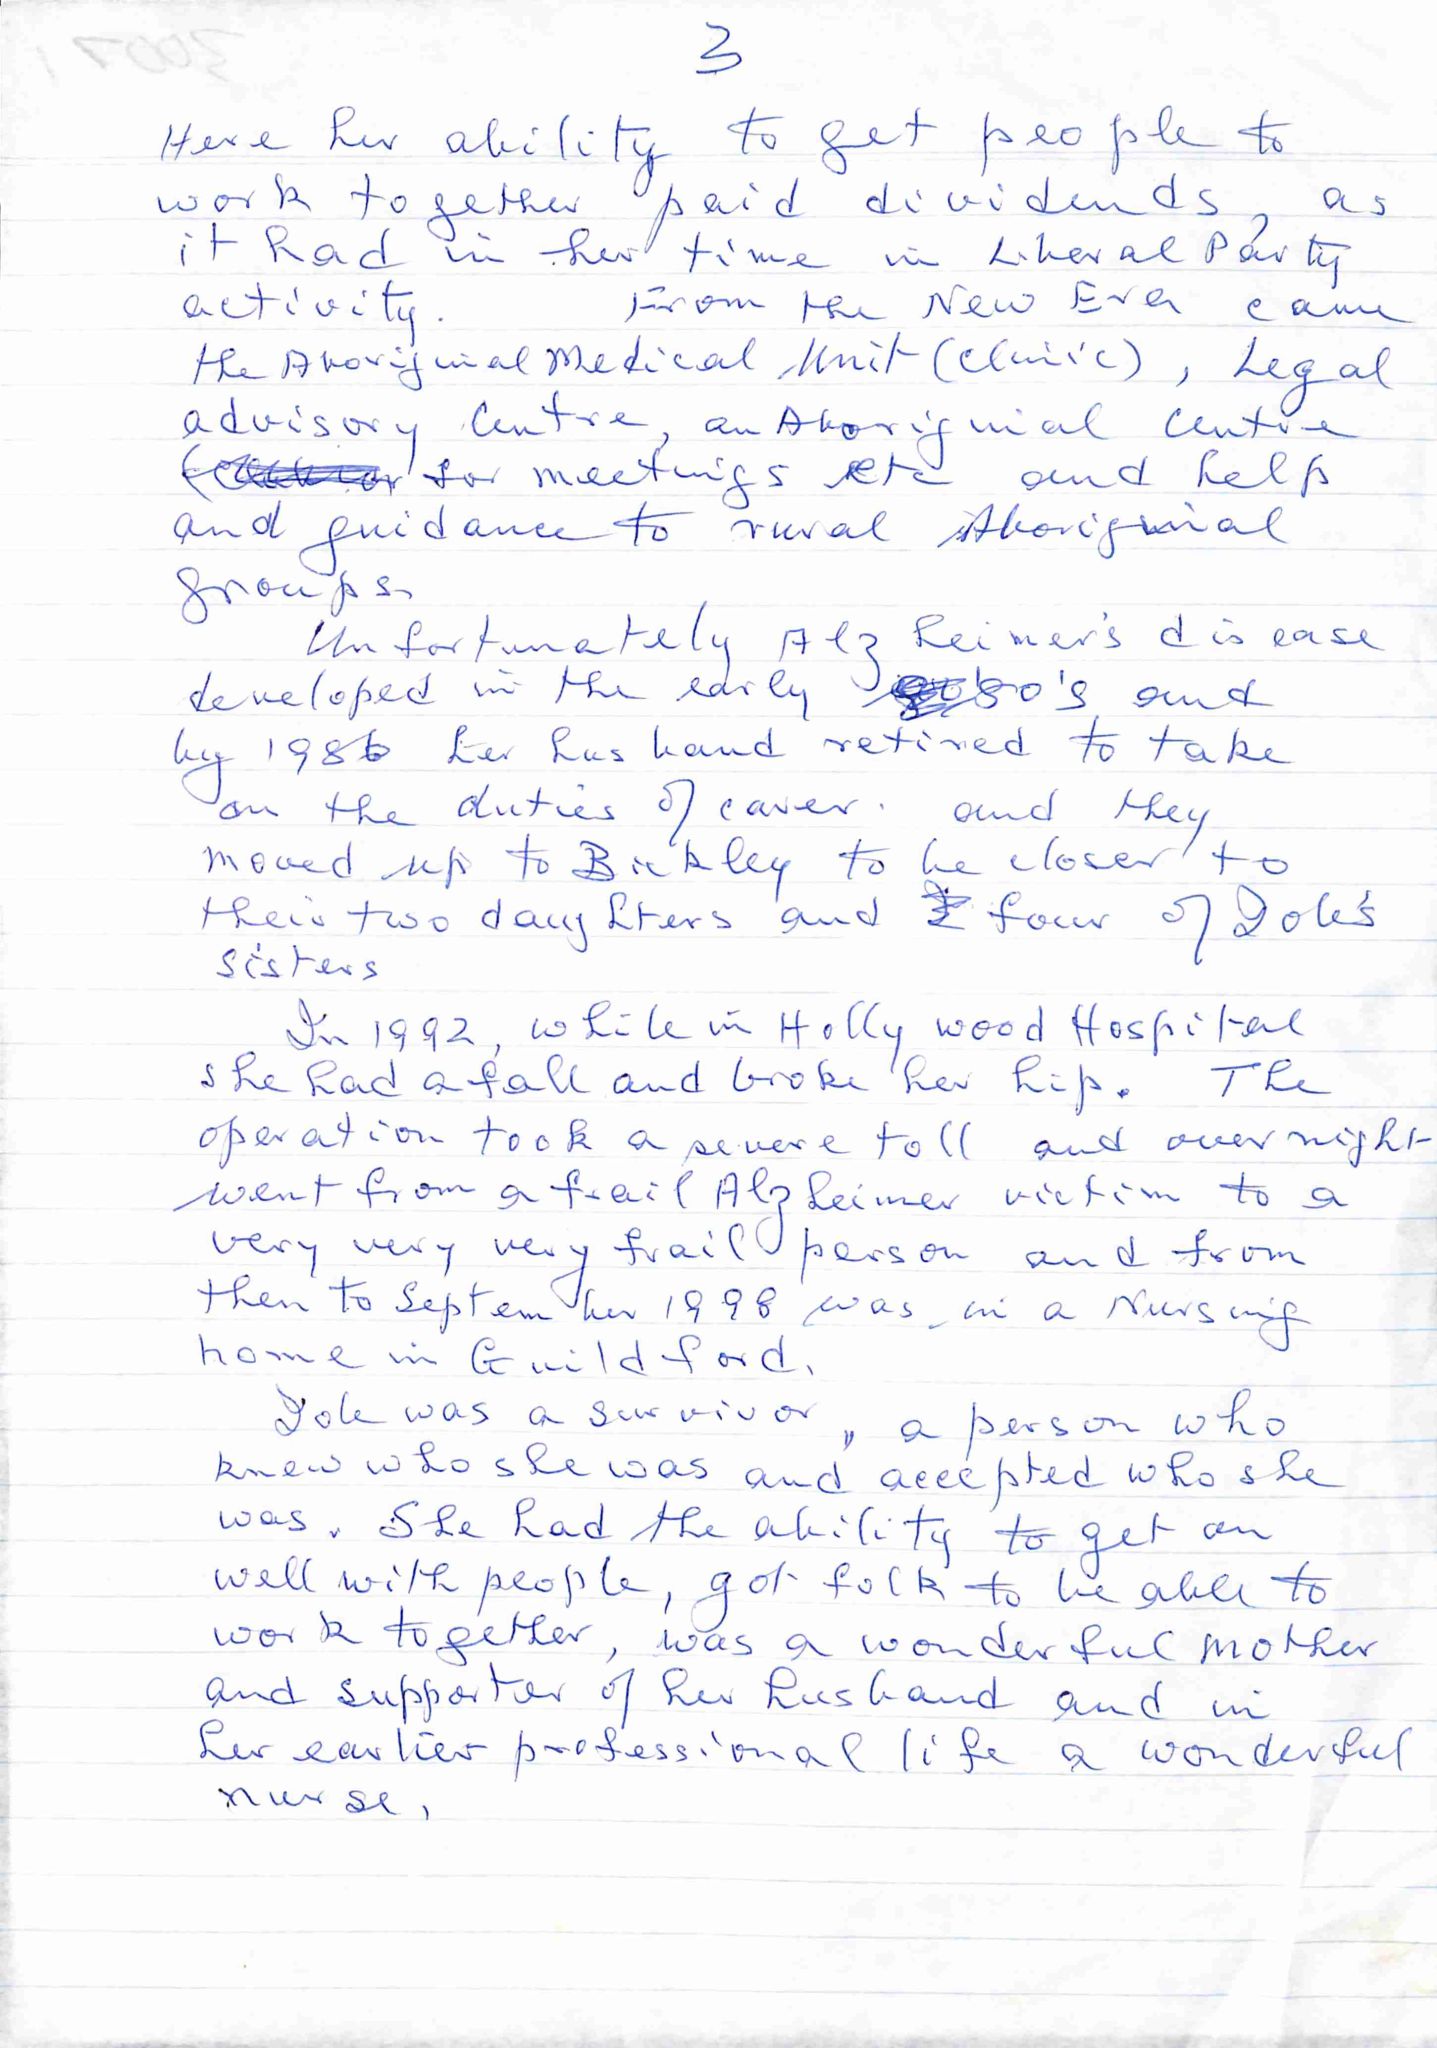 3
Here her ability to get people to
work together paid dividends, as
it had in her time in Liberal Party
activity. From the New Era came
the Aboriginal Medical Unit (clinic), Legal
advisory Centre, an Aboriginal Centre
for meetings etc and help
and guidance to rural Aboriginal
groups.
Unfortunately Alzheimer's disease
developed in the early '80's and
by 1986 her husband retired to take
on the duties of carer. and they
moved up to Bickley to be closer to
their two daughters and four of Iole's
sisters
In 1992, while in Hollywood Hospital
she had a fall and broke her hip. The
operation took a severe toll and overnight
went from a frail Alzheimer victim to a
very very very frail person and from
then to September 1998 was in a Nursing
home in Guildford.
Iole was a survivor, a person who
knew who she was and accepted who she
was. She had the ability to get on
well with people, got folk to be able to
work together, was a wonderful mother
and supporter of her husband and in
her earlier professional life a wonderful
nurse.